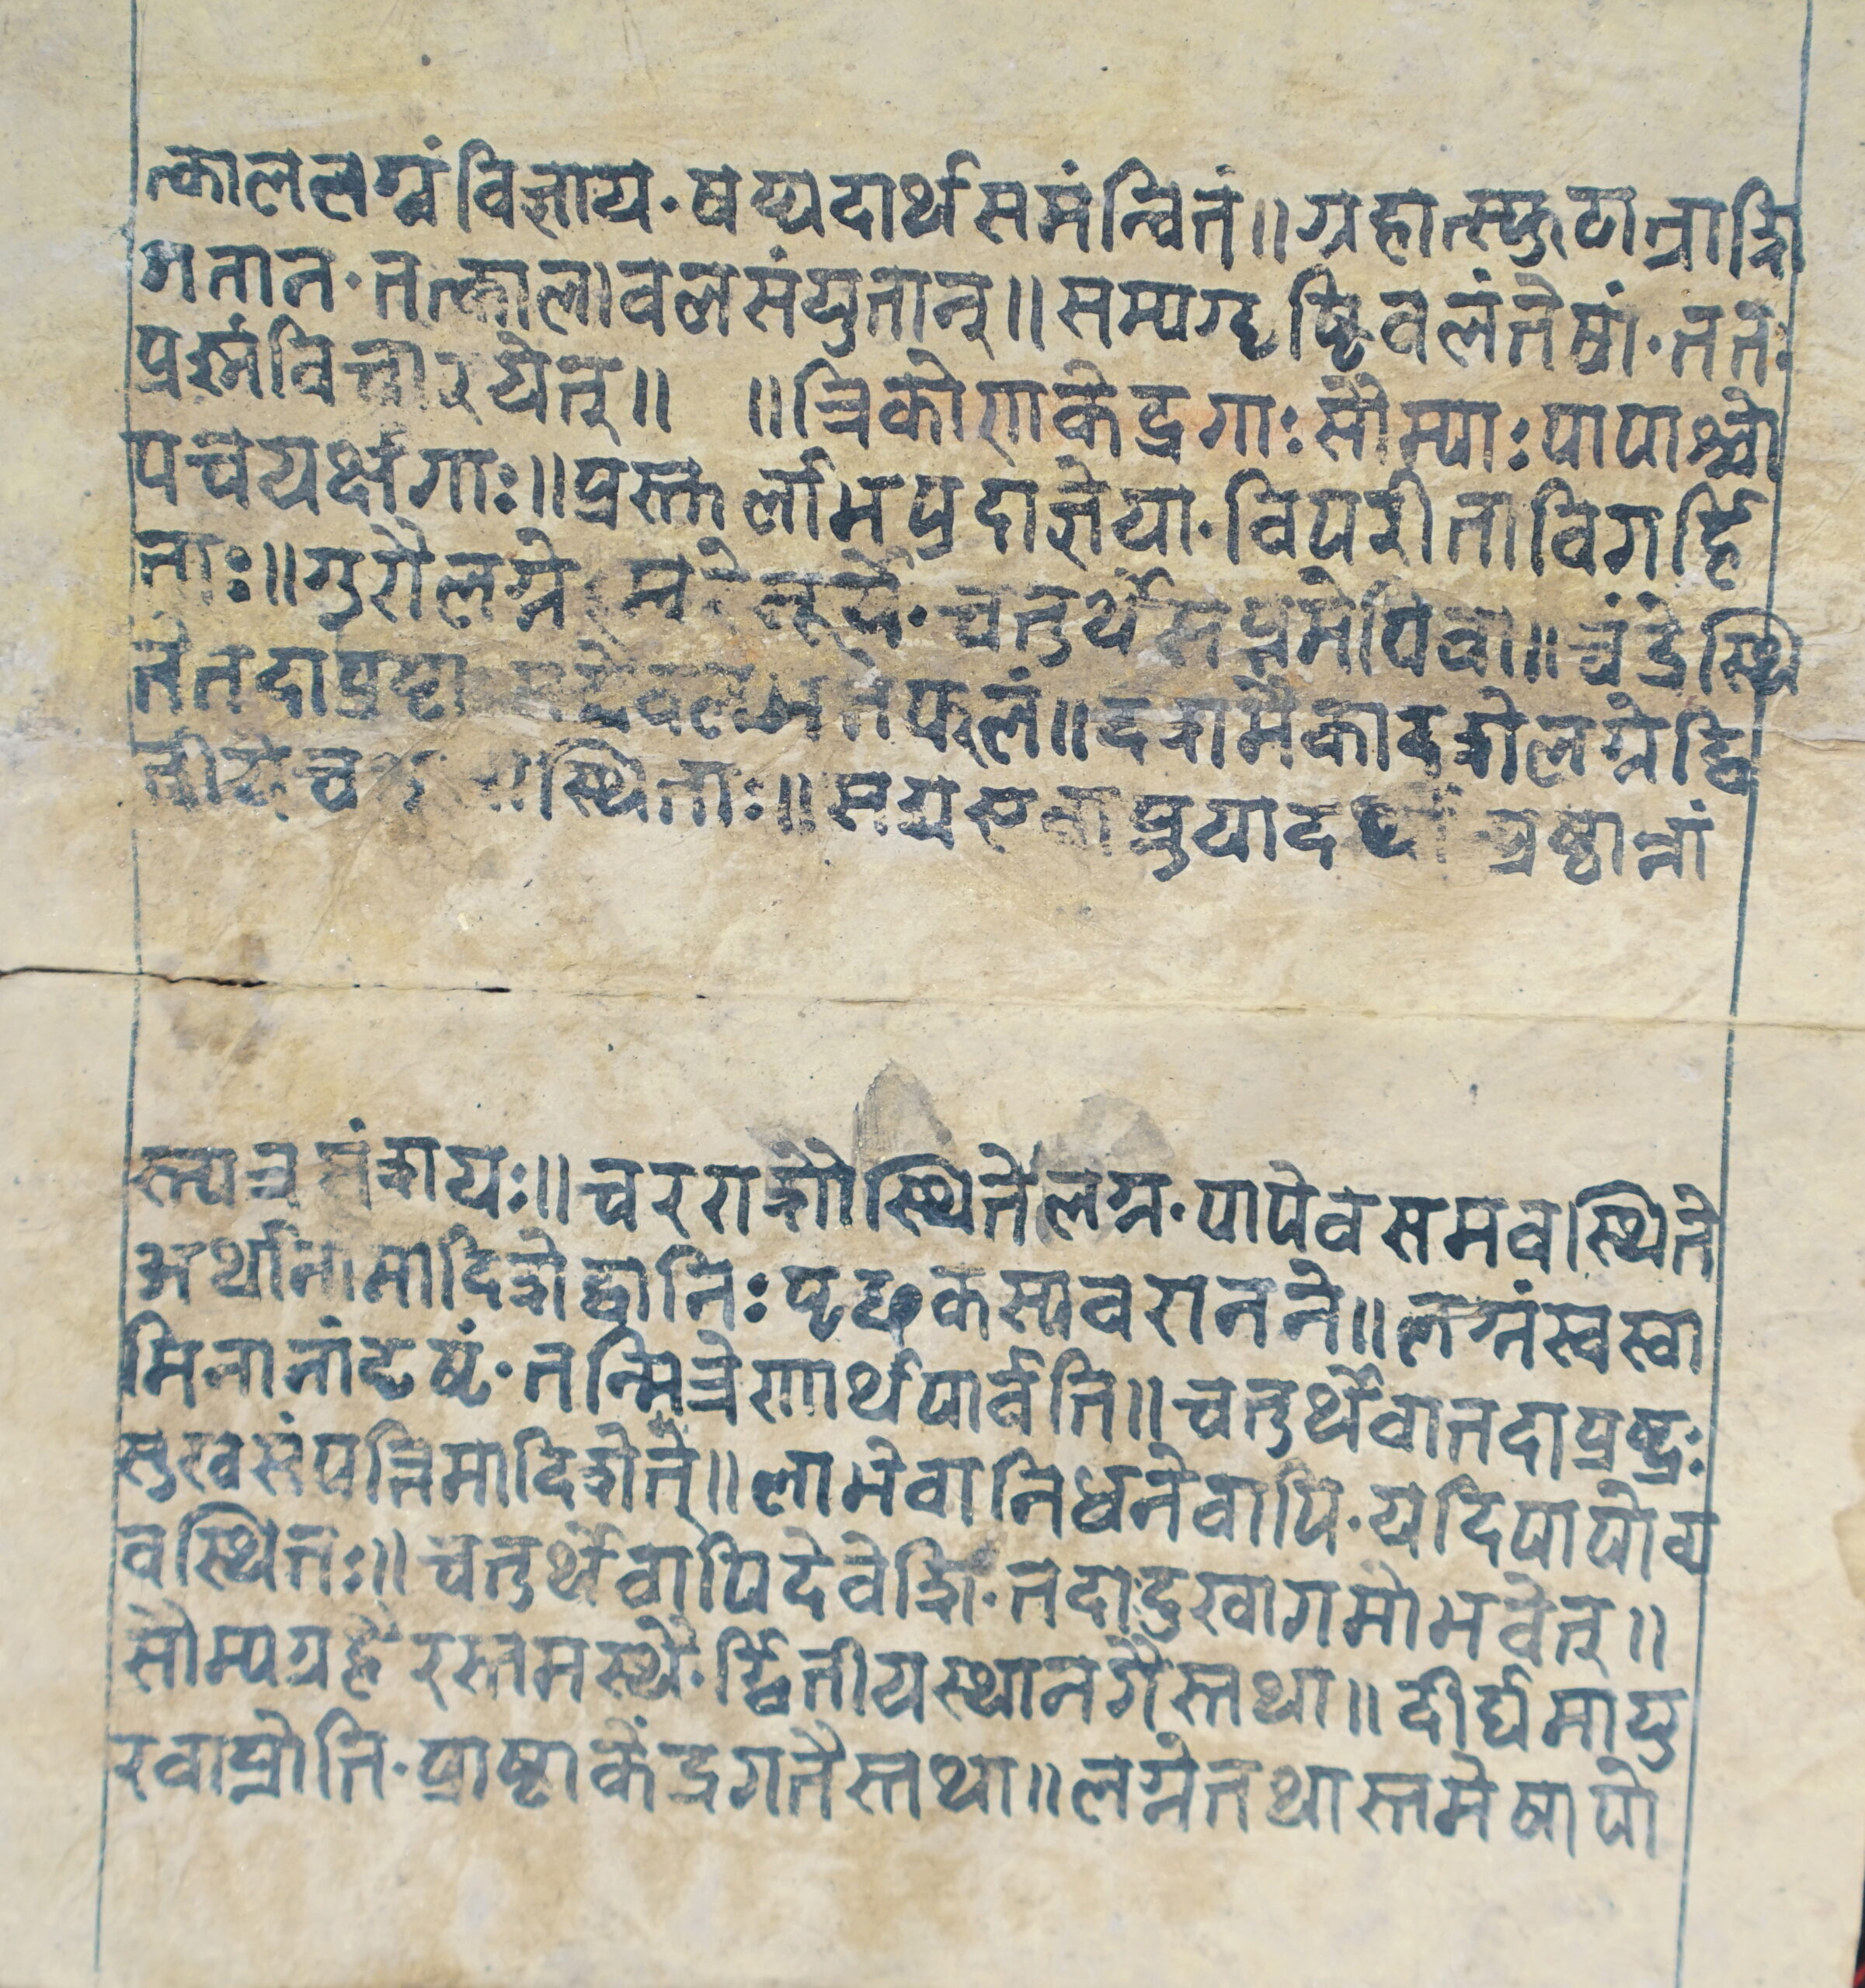 त्काललग्नं विज्ञाय · षष्पदार्थसमंन्वितं ॥ ग्रहात्स्फुटान्राशि
गतान · तत्कालावलसंयुतान् ॥ सम्यग्दृष्टिवलं तेषां · ततः
प्रश्नं विचारयेत् ॥ ॥ त्रिकोणकेद्रगाः सौम्याः पापाश्चो
पचयर्क्षगाः ॥ प्रस्तुर्लाभप्रदा ज्ञेया · विपरीता विगर्हि
ताः ॥ गुरौ लग्ने चतुर्थे सप्तमे पिवा ॥ चंद्रे स्थि
ते तदा प्रष्टा फलं ॥ दशमैकादशे लग्ने द्वि
स्थिताः ॥
संशयः ॥ चरराशौ स्थिते लग्न · पापेव समवस्थिते
अर्थानामादिशेद्धानिः पृछकस्य वरानने ॥ लग्नं स्वस्वा
मिनानां दृष्टं · तन्मित्रेणार्थ पार्वति ॥ चतुर्थे वा तदा प्रष्टुः
सुखसंपत्तिमादिशेत् ॥ लाभे वा निधने वापि · यदि पापो व्य
वस्थितः ॥ चतुर्थे वापि देवेशि · तदा दुखागमो भवेत् ॥
सौम्यग्रहैरस्तमस्थै · र्द्वितीयस्थानगैस्तथा ॥ दीर्घमायु
रवाप्नोति · प्राष्टा केंद्रगतैस्तथा ॥ लग्ने तथास्तमे षापो